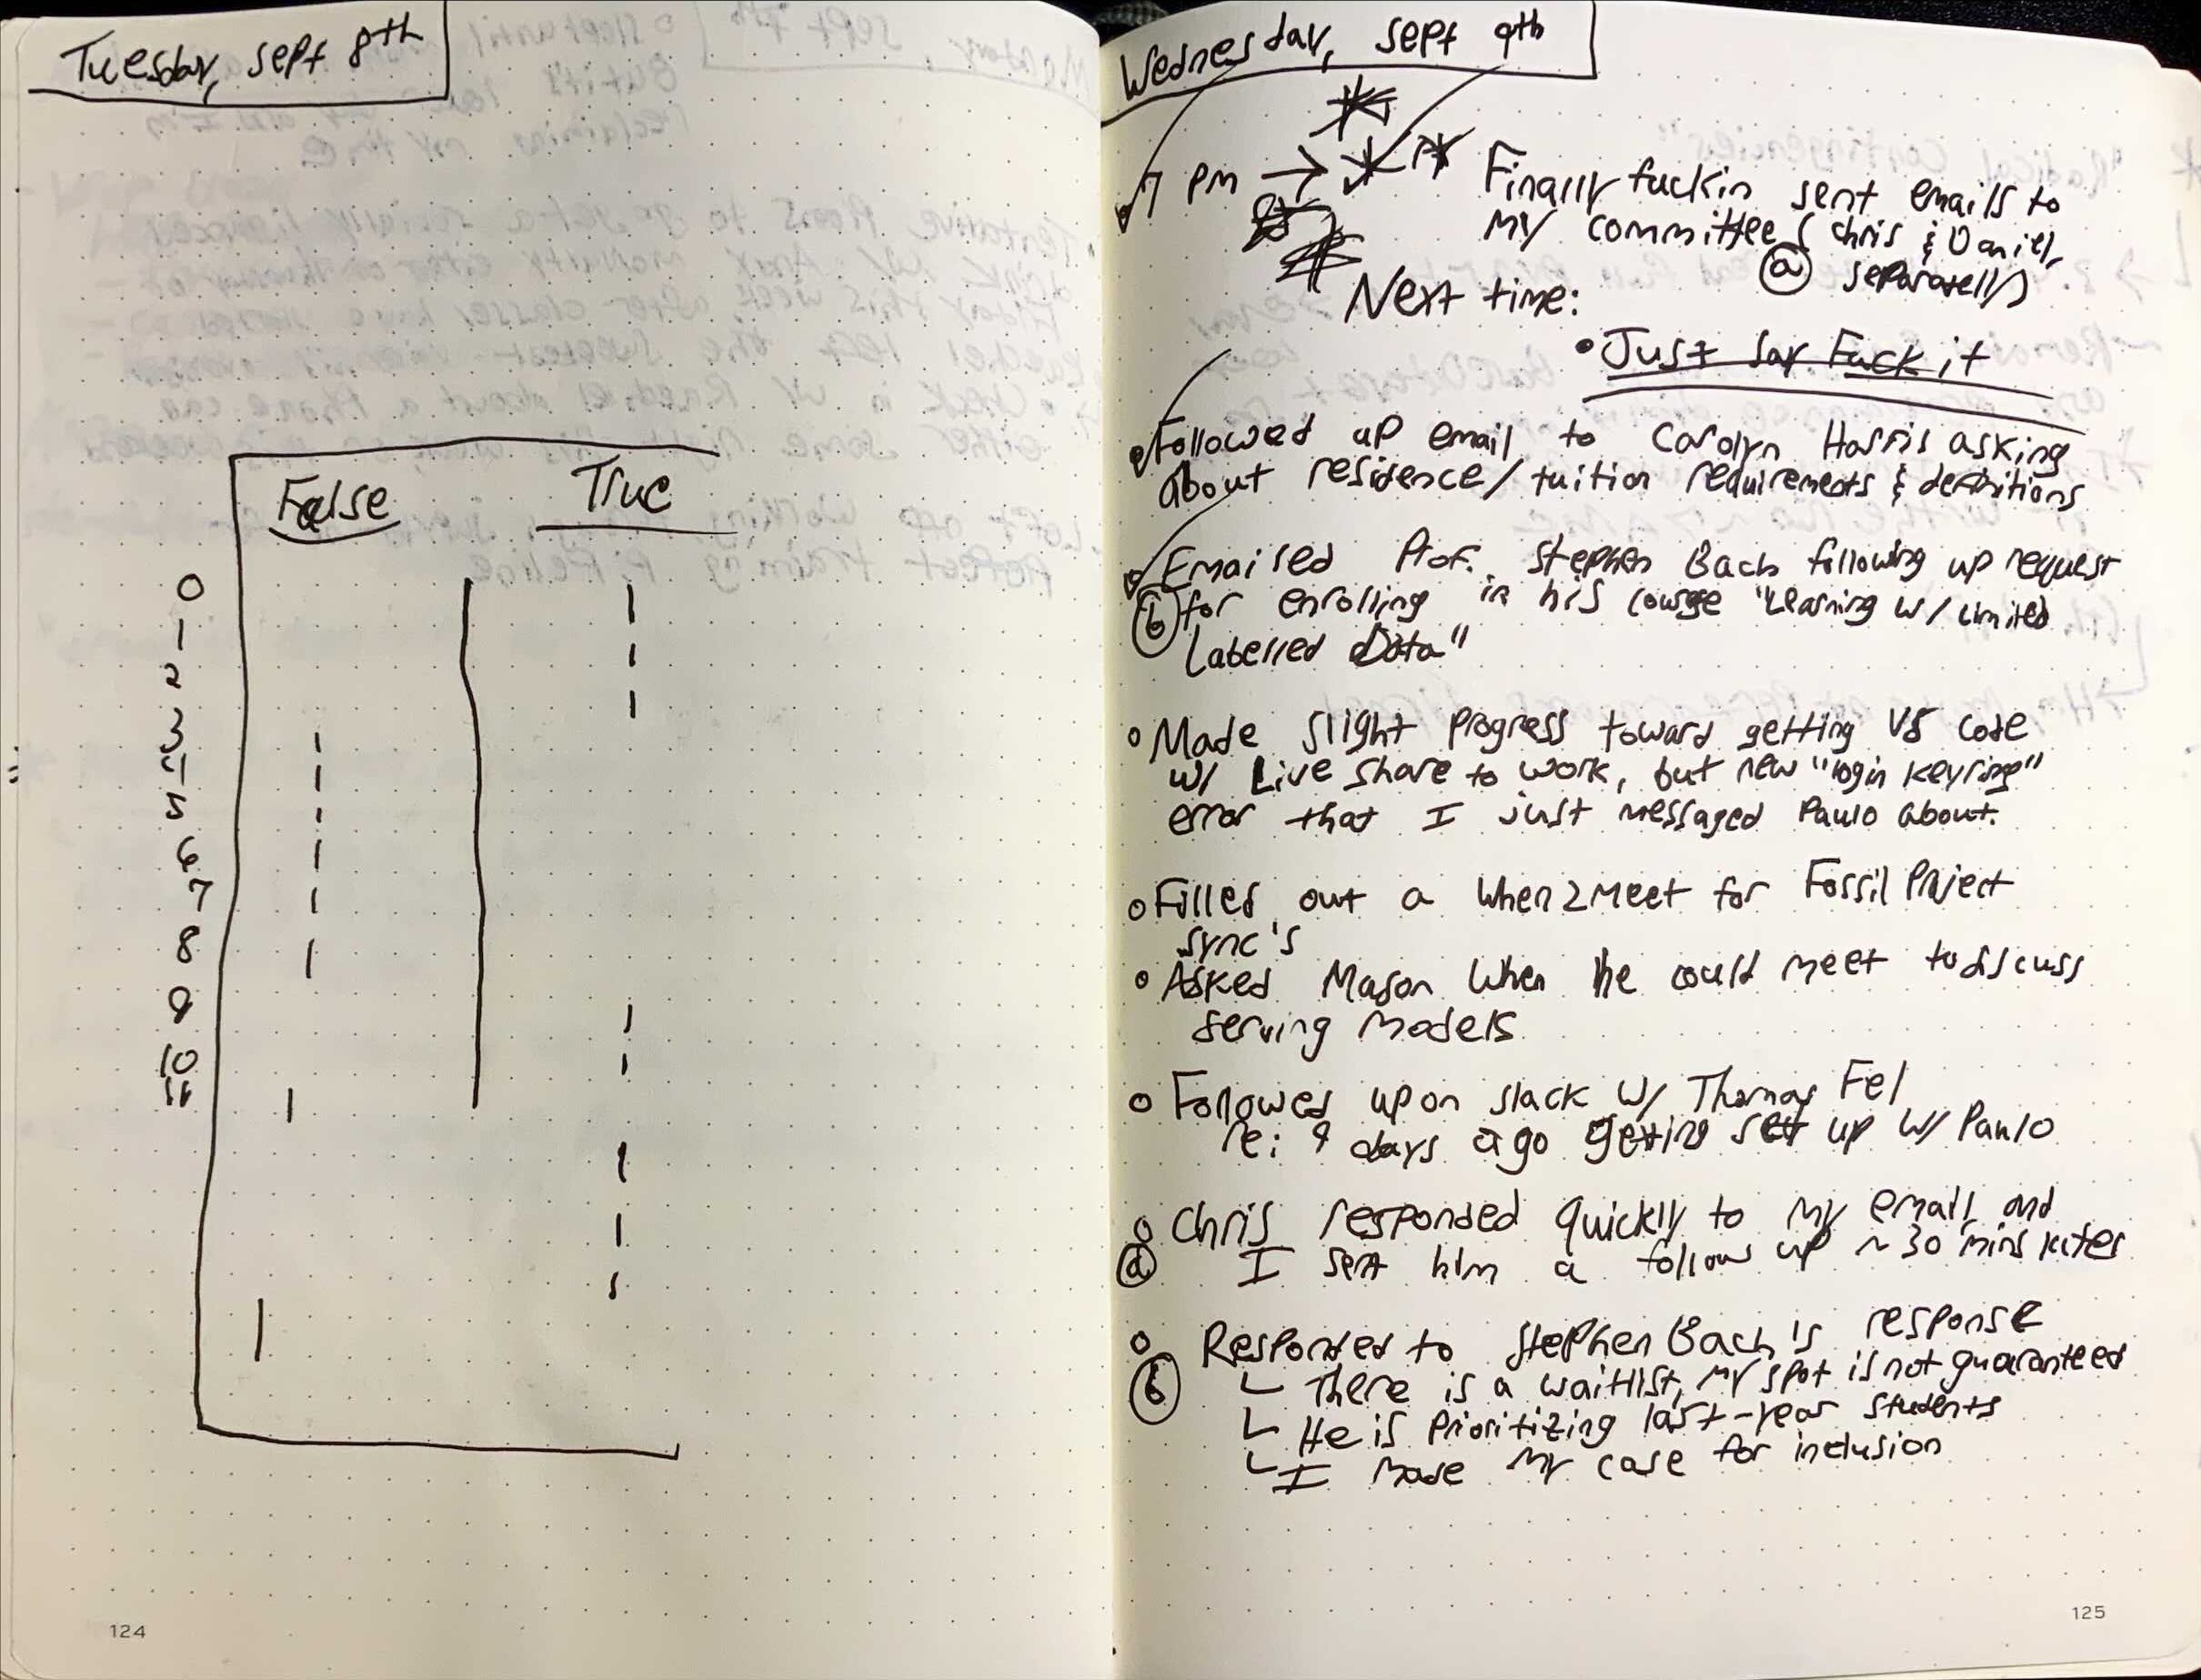 Tuesday, sept 8th
False True
0
1
2
3
4
5
6
7
8
9
10
11
124
Wednesday, sept 9th
7 PM → Finally fuckin sent emails to
my committee (chris & Daniel,
ⓐ separately)
Next time:
• Just say Fuck it
Followed up email to Carolyn Harris asking
about residence/tuition requirements & definitions
Emailed Prof. Stephen Bach following up request
ⓑ for enrolling in his course "Learning w/ Limited
Labelled Data"
Made slight progress toward getting VS code
w/ Live share to work, but new "login keyring"
error that I just messaged Paulo about.
Filled out a when2meet for Fossil Project
sync's
Asked Mason when he could meet to discuss
serving models
Followed up on slack w/ Thomas Fel
re: 9 days ago getting set up w/ Paulo
Chris responded quickly to my email and
ⓐ I sent him a follow up ~30 mins later
Responded to Stephen Bach's response
ⓑ There is a waitlist, my spot is not guaranteed
He is prioritizing last-year students
I made my case for inclusion
125